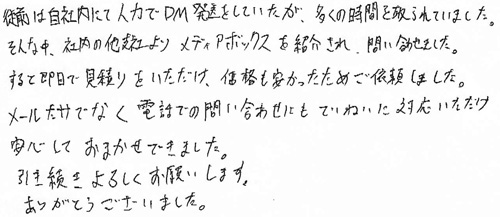 従前は自社内にて人力でDM発送をしていたが、多くの時間を取られていました。
そんな中、社内の他部署より メディアボックス を紹介され、問い合わせました。
すると即日で見積りをいただけ、価格も安かったためご依頼しました。
メールだけでなく 電話での問い合わせにも ていねいに対応いただけ
安心して おまかせできました。
引き続きよろしくお願いします。
ありがとうございました。